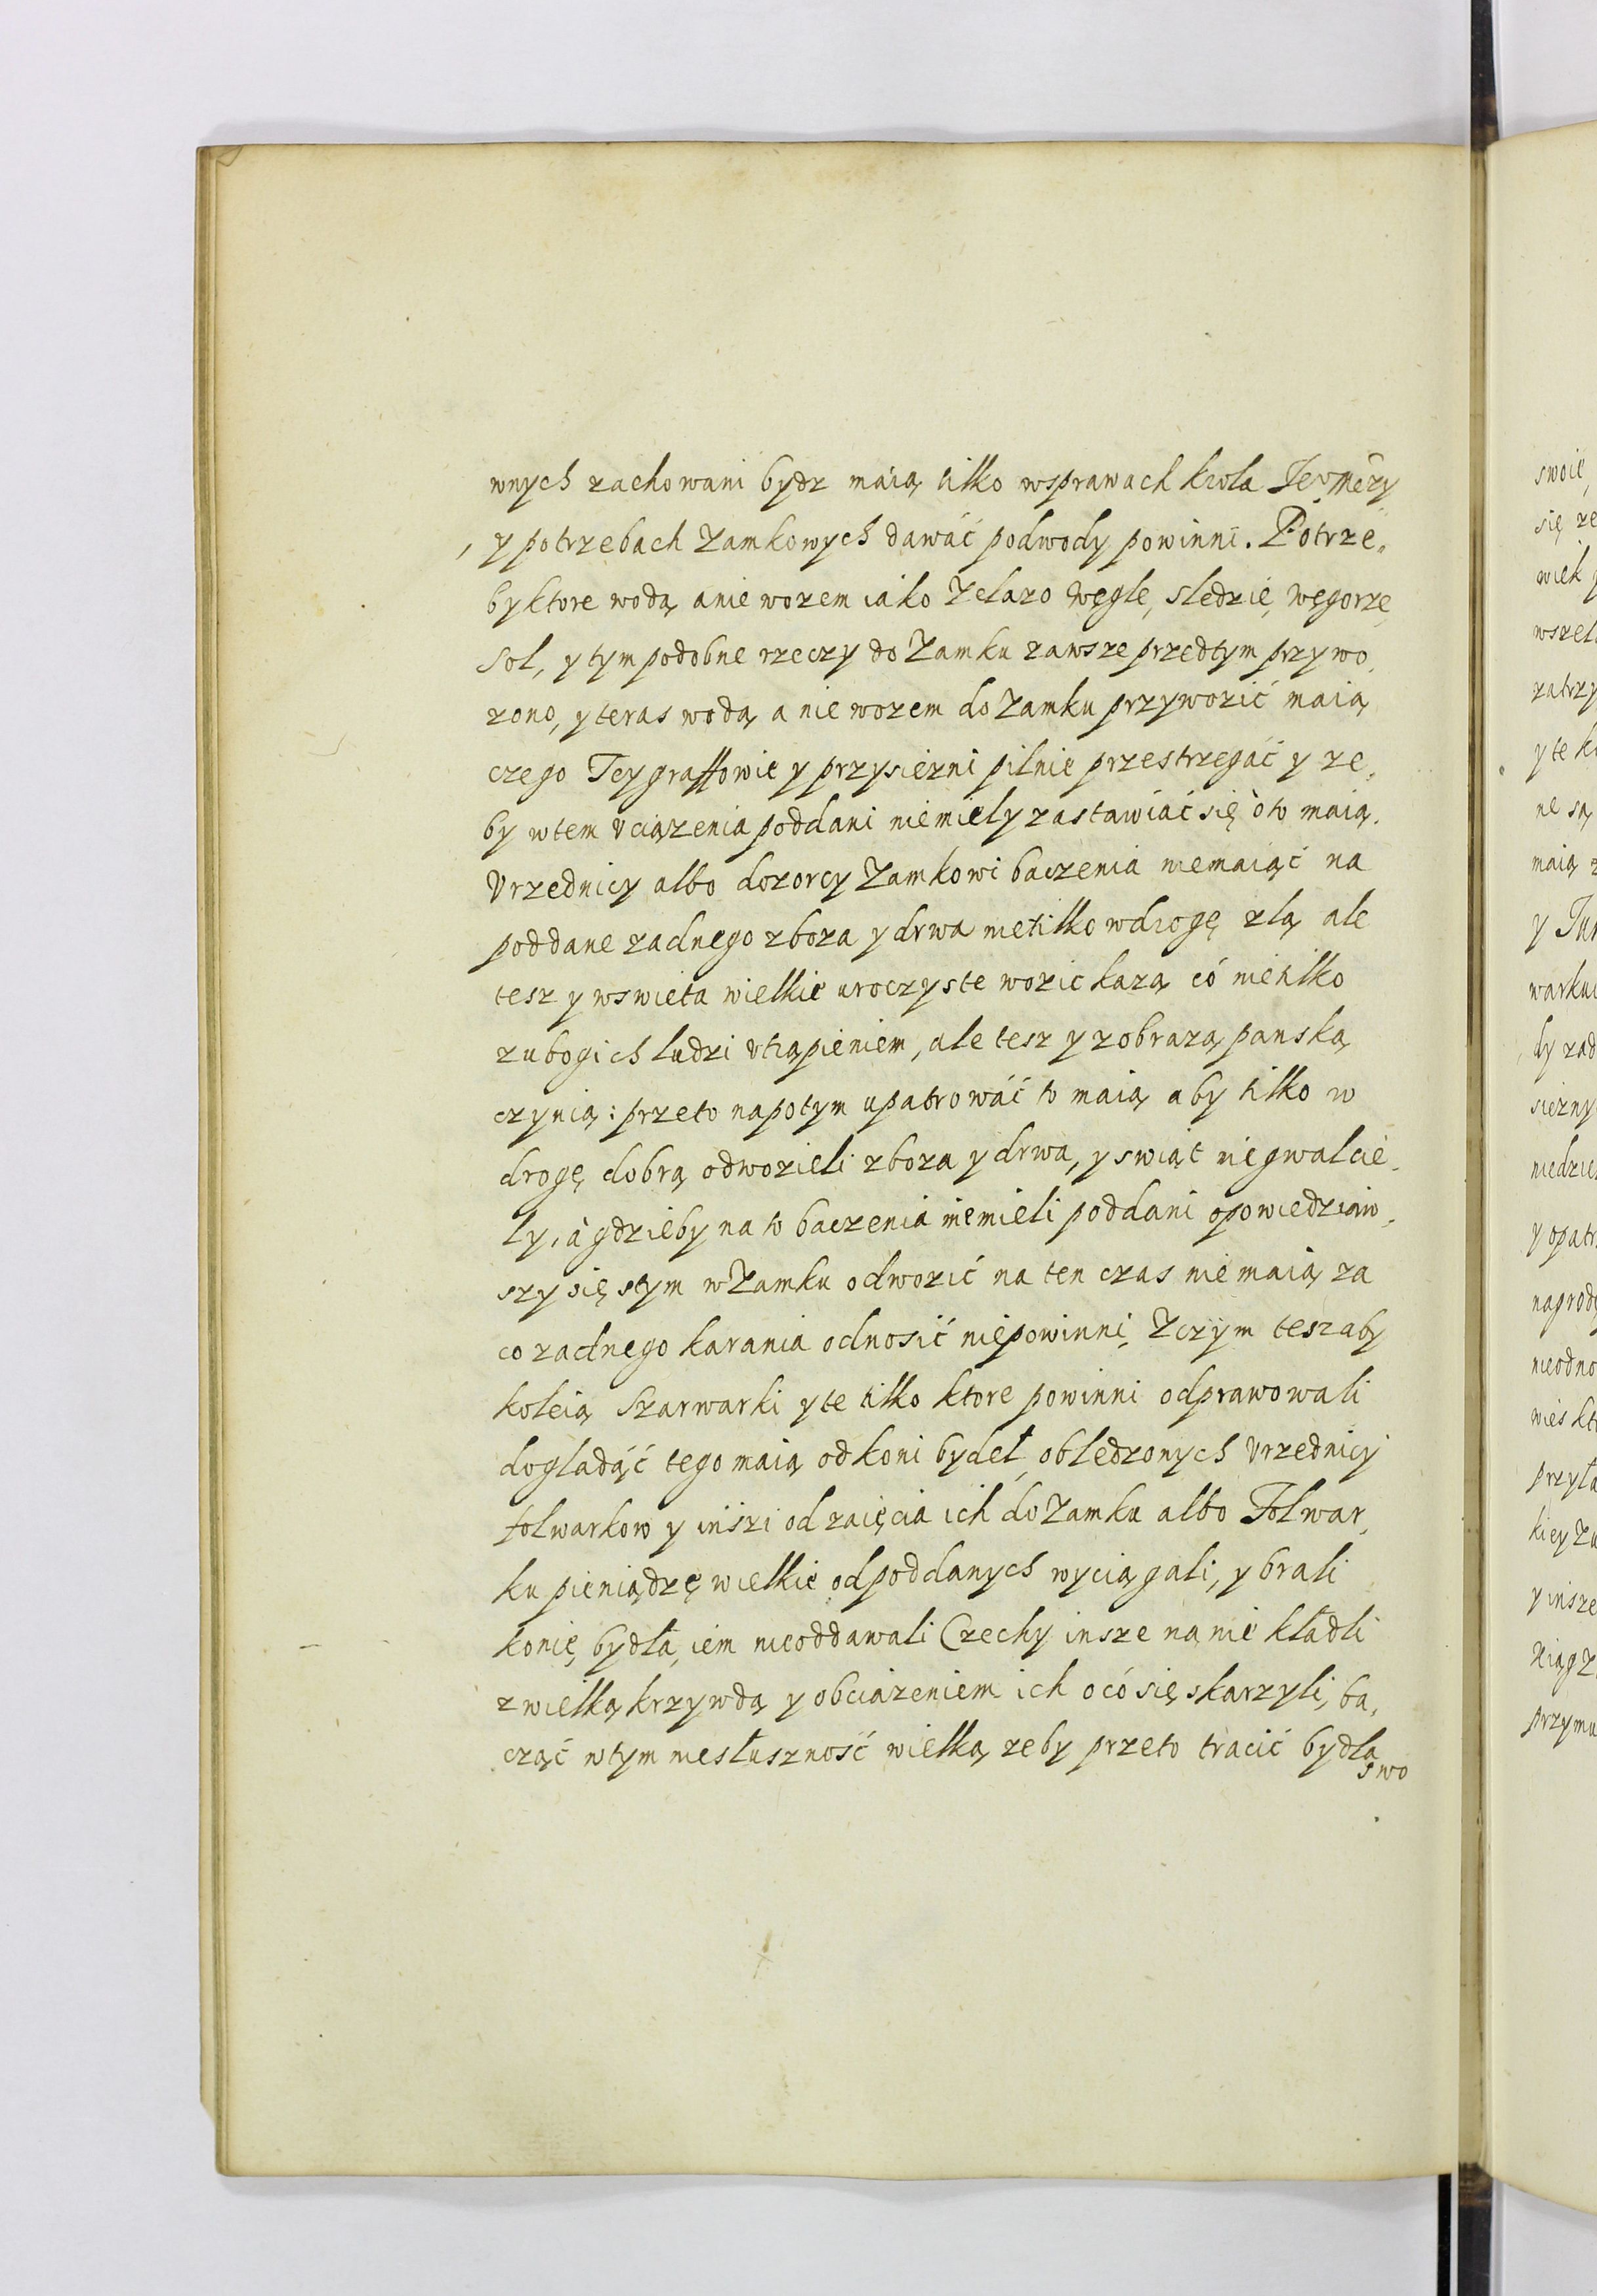 wnych zachowani bydz maią tilko wsprawach krola Je͞omczi
, y potrzebach Zamkowych dawáć podwody powinni. Potrze„
by ktore wodą anie wozem iako Zelazo węgle, sledzie, węgorze,
Sol, y tym podobne rzeczy do Zamku zawsze przedtym przywo„
zono, y teras wodą a nie wozem do Zamku przywozić maią
czego Teygraffowie y przysiezni pilnie przestrzegáć y ze„
by wtem vciązenia poddani niemiely zastawiać się oto maią.
Vrzednicy albo dozorcy Zamkowi baczenia niemaiąć na
poddane zadnego zboza y drwa nietilko wdrogę złą ale
tesz y wswieta wielkie uroczyste wozic kazą có nietilko
zubogich ludzi vtrąpieniem, ale tesz y zobrazą panską
czynią: przeto napotym upatrowáć to maią aby tilko w
drogę dobrą odwozieli zboza y drwa, y swiąt niegwalcie„
ly, à gdzieby na to baczenia niemieli poddani opowiedziaw„
szy się stym wZamku odwozić na ten czas nie maią za
co zadnego karania odnosić niepowinni, Zczym tesz aby
koleią Szarwarki y te tilko ktore powinni odprawowali
dogladąć tego maią od koni bydeł, obledzonych Vrzednicy
folwarkow y inszi od zaięcia ich do Zamku albo Folwar„
ku pieniądzę wielkie od poddanych wyciągali, y brali
konię, bydła, iem nieoddawali Czechy insze na nie kładli
zwielką krzywdą y obciązeniem ich o có się skarzyli, ba„
cząć wtym niesłuszność wielką zeby przeto tracić bydła
swo
swoie,
się ze
wiek
wszel
zatrzy
y te k
ne są
maią z
y Tur
warku
dy zad
siezny
niedzie
y opatr
nagrod
nieodno
wies kt
przyła
kiey Za
y insze
przymu